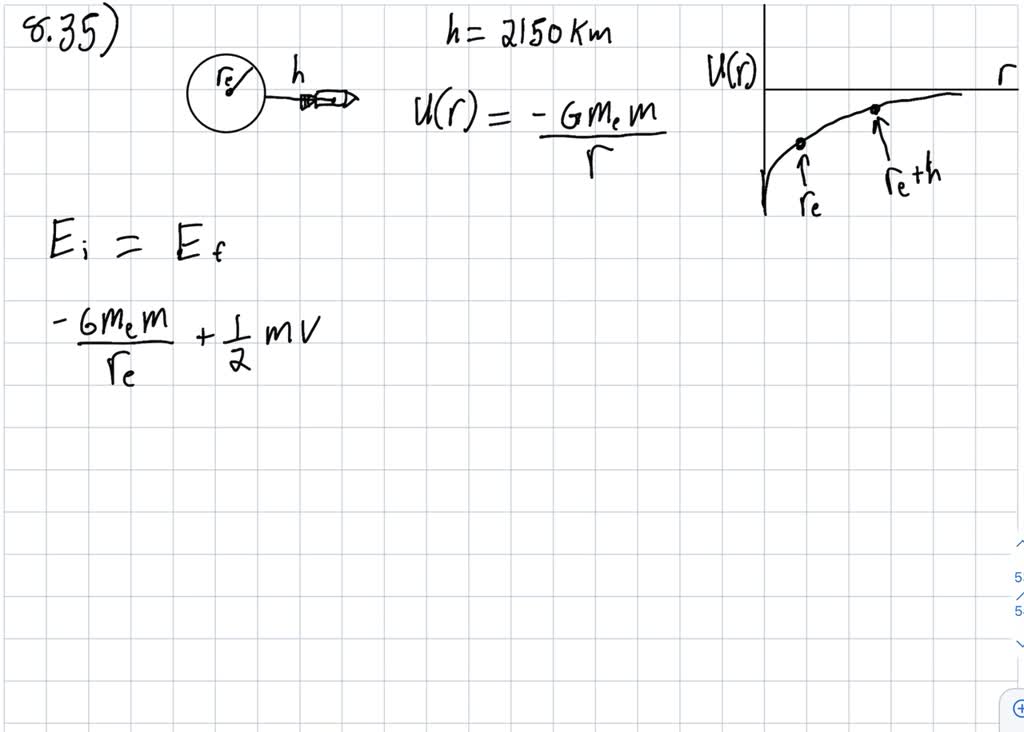 8.35)
h = 2150 Km
re
h
U(r) = -Gmem/r
U(r)
r
re
re+h
Ei = Ef
-Gmem/re + 1/2 mV